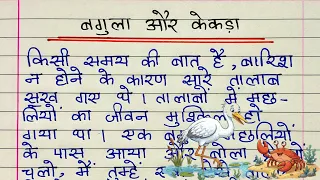 बगुला और केकड़ा
किसी समय की बात है, बारिश
न होने के कारण सारे तालाब
सूख गए थे। तालाबों में मछ-
लियों का जीवन मुश्किल हो
गया था। एक मछलियों
के पास आया और बोला
चलो, मैं तुम्हें